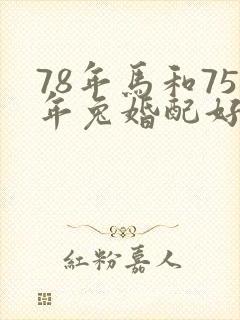 78年馬和75
年兔婚配好
紅粉嘉人